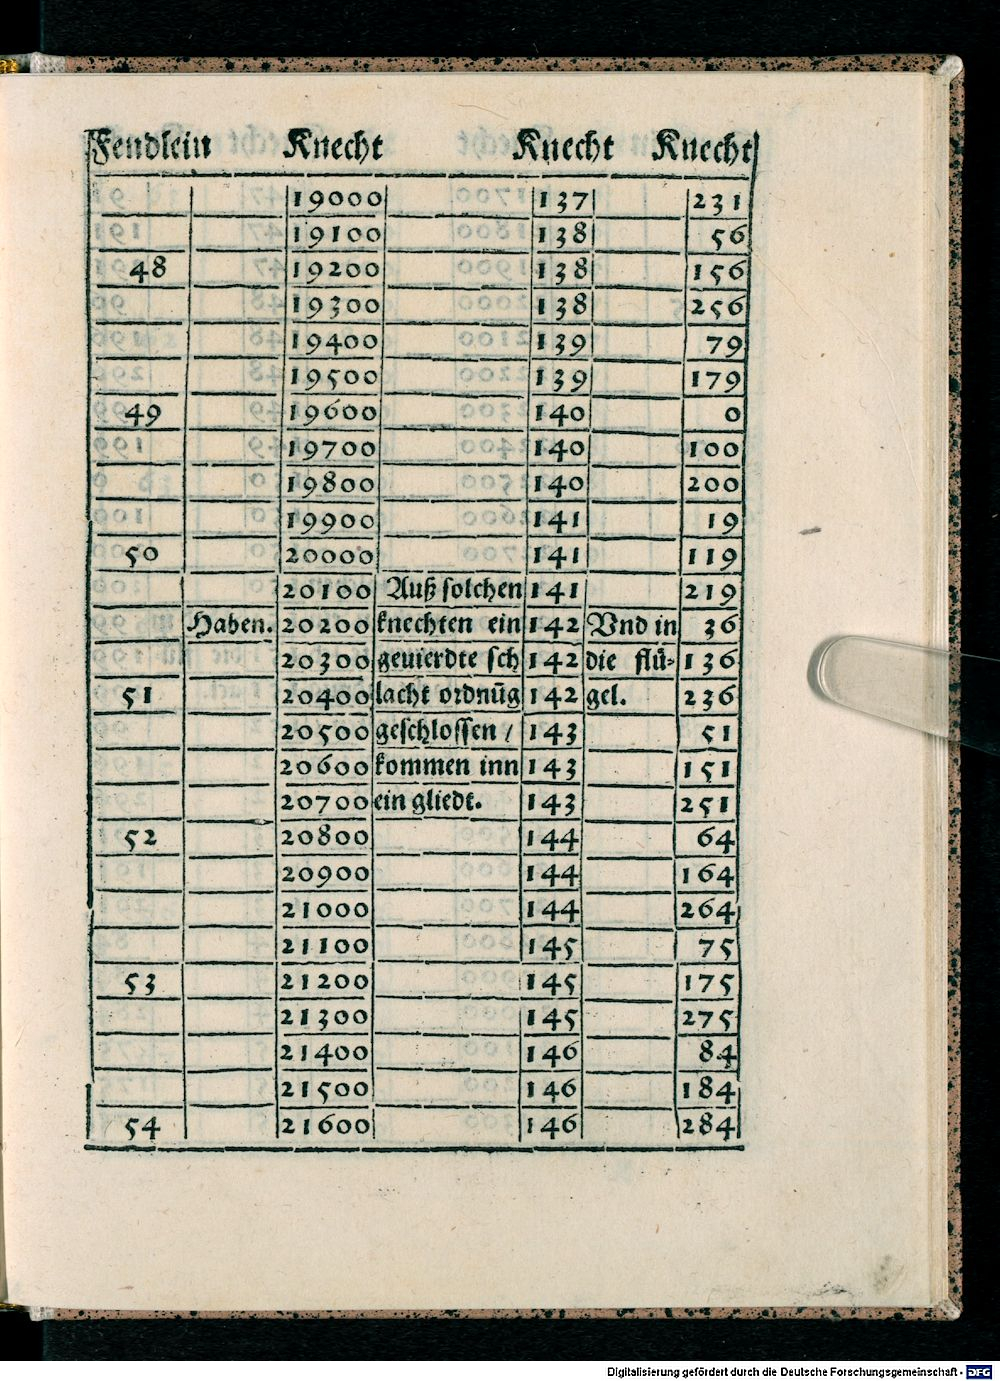 Fendlein Knecht Knecht Knecht
19000 137 231
19100 138 56
48 19200 138 156
19300 138 256
19400 139 79
19500 139 179
49 19600 140 0
19700 140 100
19800 140 200
19900 141 19
50 20000 141 119
20100 Auß solchen 141 219
Haben. 20200 knechten ein 142 Vnd in 36
20300 geuierdte sch 142 die flü- 136
51 20400 lacht ordnūg 142 gel. 236
20500 geschlossen / 143 51
20600 kommen inn 143 151
20700 ein gliedt. 143 251
52 20800 144 64
20900 144 164
21000 144 264
21100 145 75
53 21200 145 175
21300 145 275
21400 146 84
21500 146 184
54 21600 146 284
Digitalisierung gefördert durch die Deutsche Forschungsgemeinschaft - DFG